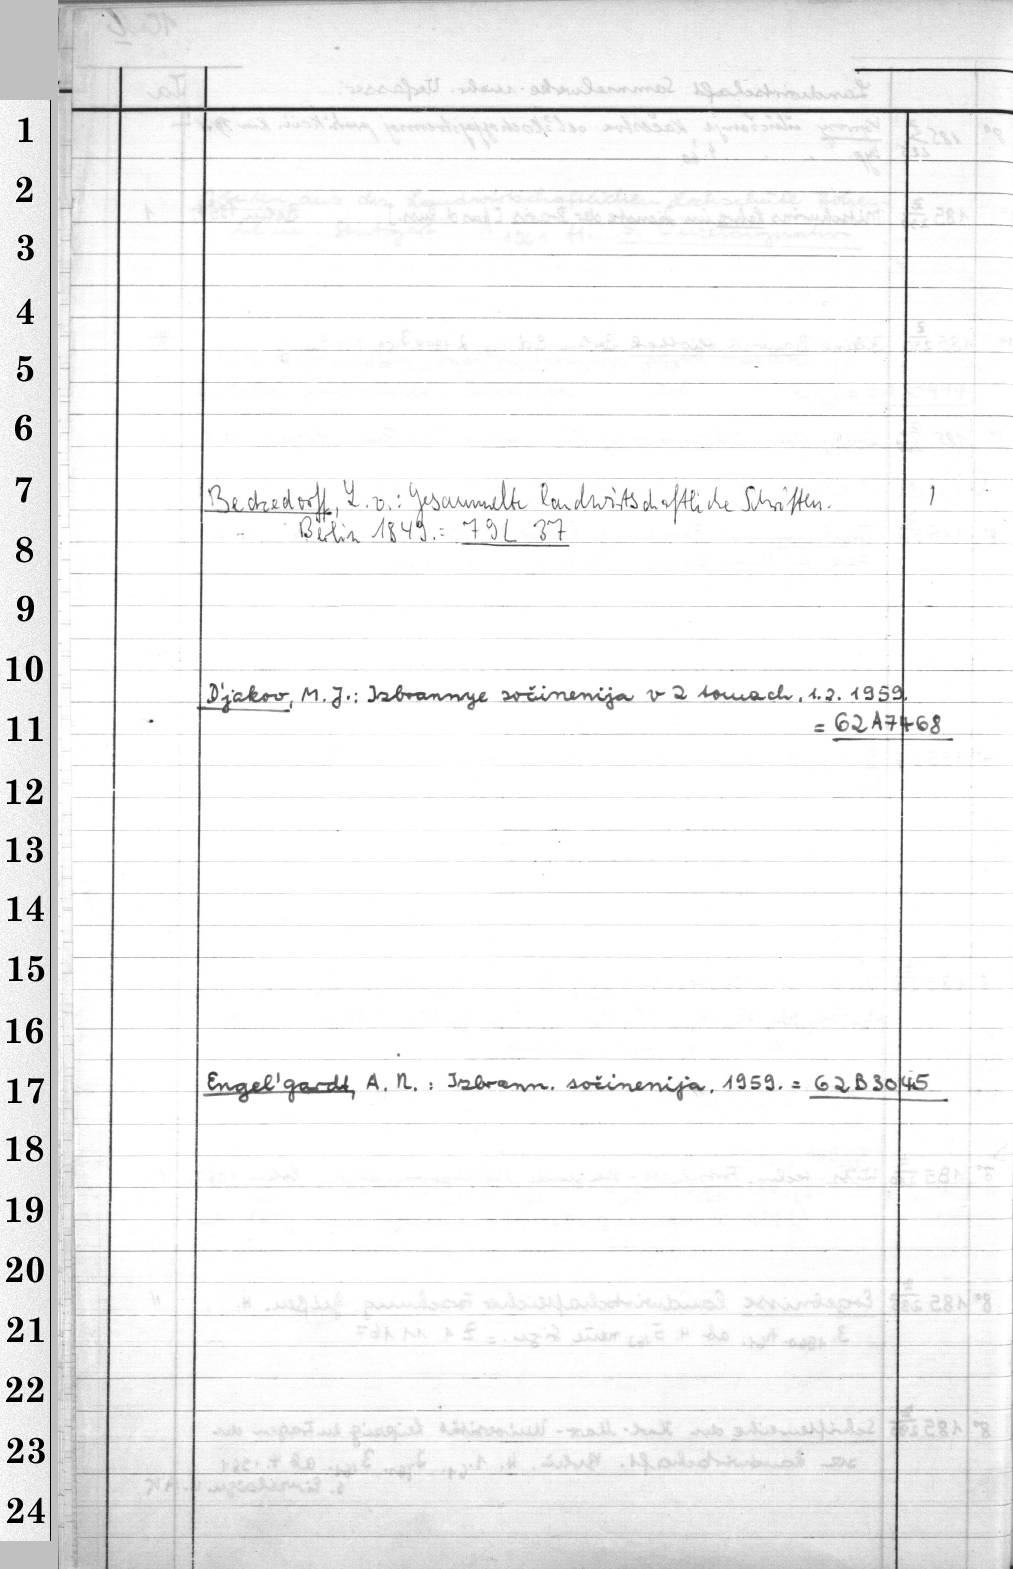 1
2
3
4
5
6
7
Beckedorff, L. v.: Gesammelte landwirtschaftliche Schriften. 1
Berlin 1849.= 79L 37
8
9
10
D'jakov, M. J.: Izbrannye sočinenija v 2 tomach. 1.2. 1959.
= 62A7468
11
12
13
14
15
16
Engel'gardt, A. N.: Izbrann. sočinenija. 1959. = 62B3045
17
18
19
20
21
22
23
24